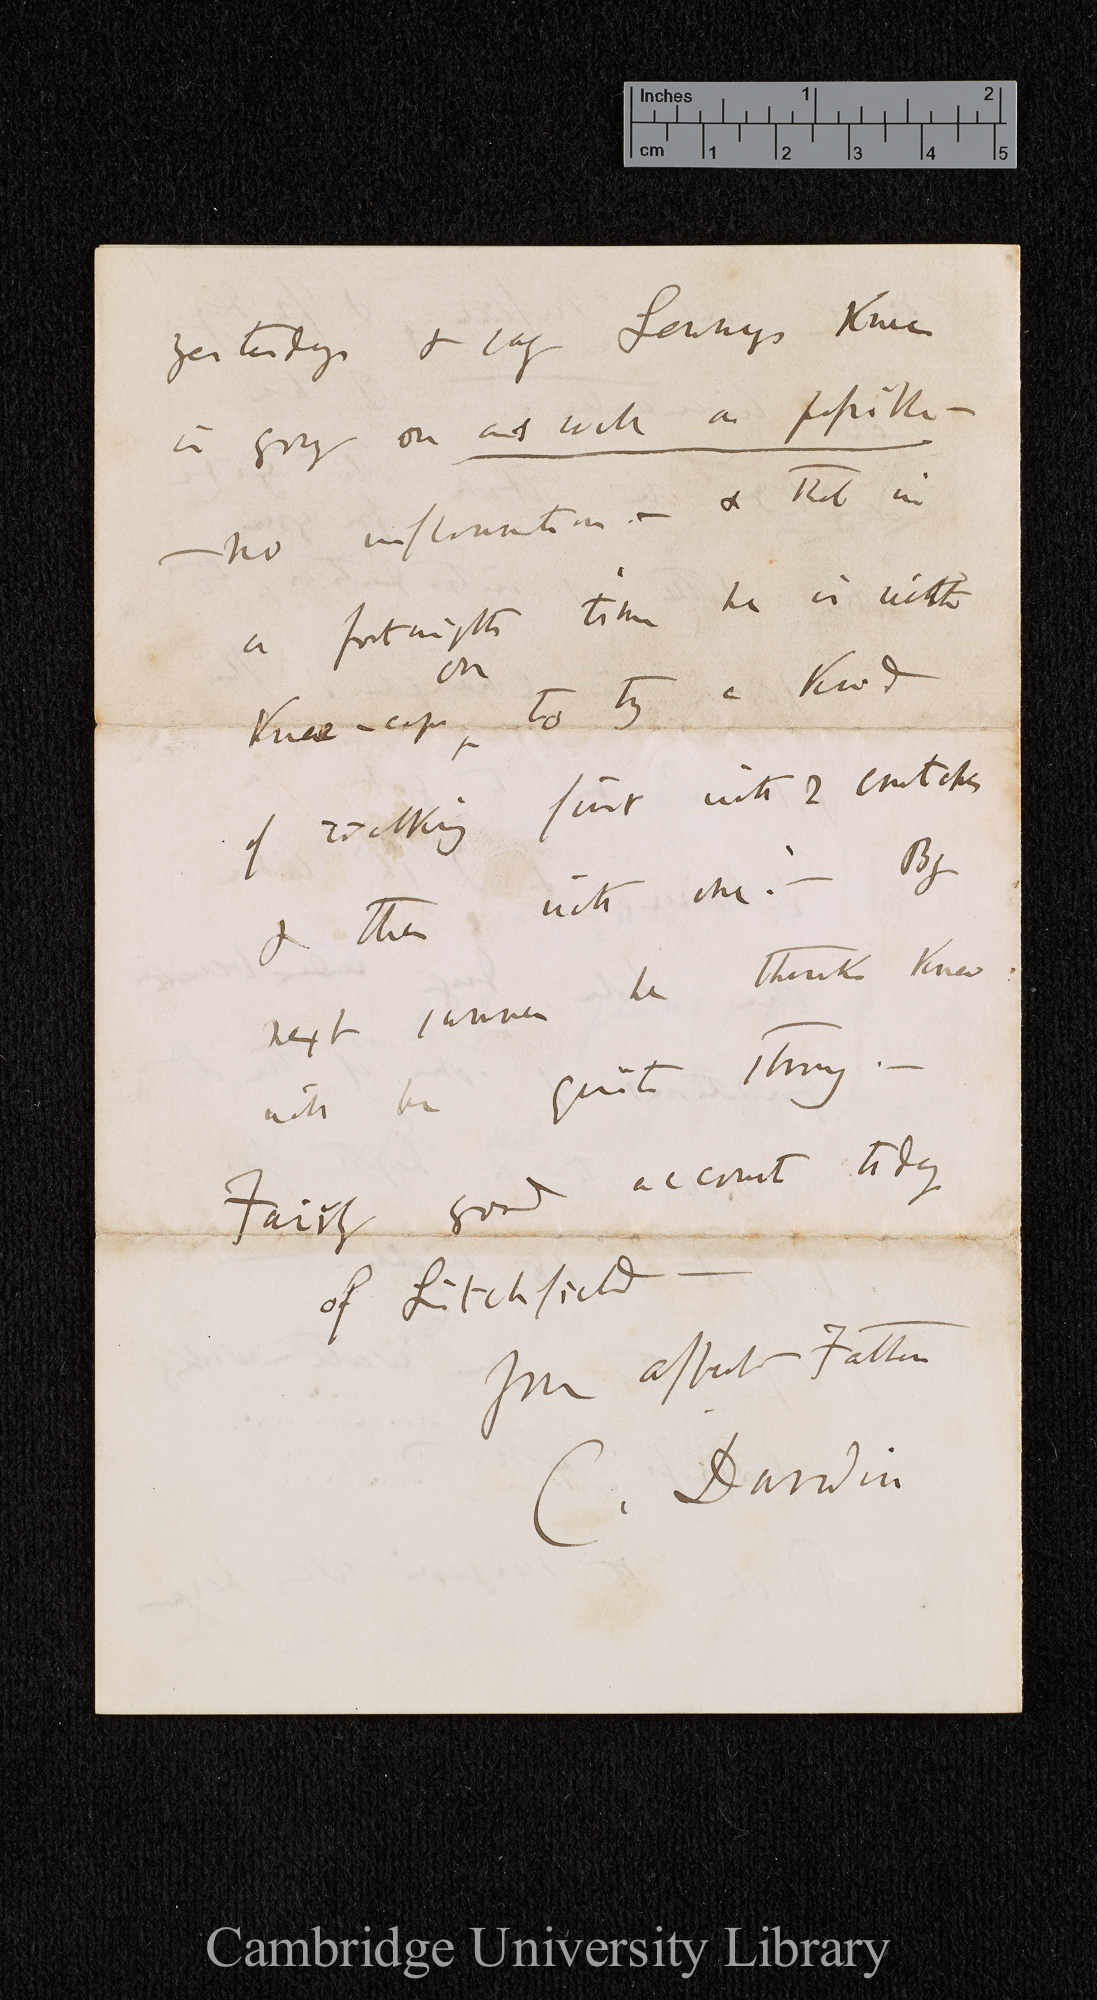 Inches 1 2
cm 1 2 3 4 5
yesterday & says Lennys Knee
is going on as well as possible—
—no inflammation.— & that in
a fortnights time he is with
Knee-cap on to try a kind
of walking first with 2 crutches
& then with one.— By
next summer he thinks Knee
will be quite strong.—
Fairly good account today
of Litchfield—
Your affect Father
C. Darwin
Cambridge University Library